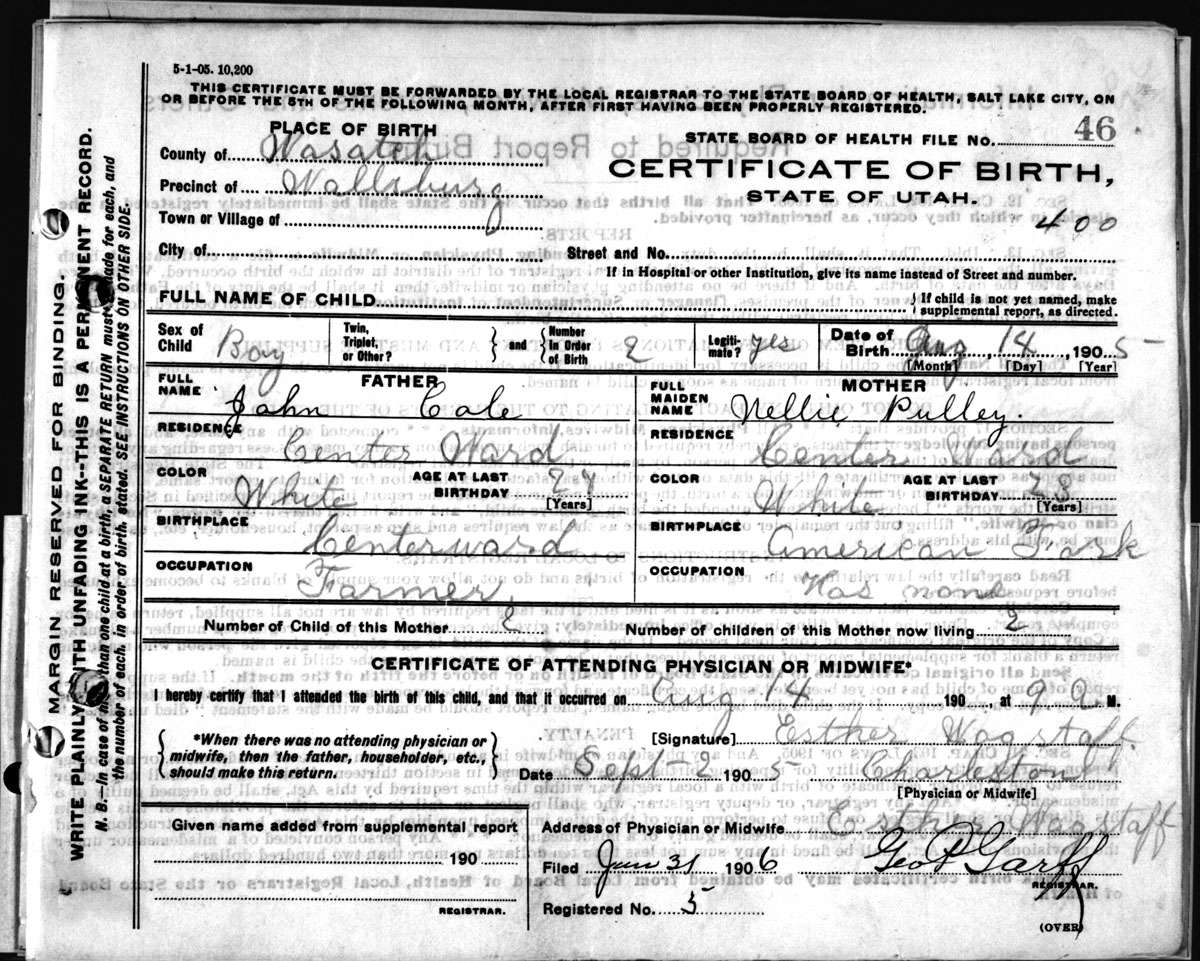 5-1-05. 10,200
THIS CERTIFICATE MUST BE FORWARDED BY THE LOCAL REGISTRAR TO THE STATE BOARD OF HEALTH, SALT LAKE CITY, ON
OR BEFORE THE 5TH OF THE FOLLOWING MONTH, AFTER FIRST HAVING BEEN PROPERLY REGISTERED.
PLACE OF BIRTH
STATE BOARD OF HEALTH FILE NO. 46
County of Wasatch
CERTIFICATE OF BIRTH,
Precinct of Wallsburg
STATE OF UTAH.
Town or Village of
400
City of
Street and No.
If in Hospital or other Institution, give its name instead of Street and number.
FULL NAME OF CHILD
{ If child is not yet named, make
supplemental report, as directed.
Sex of Child Boy
Twin, Triplet, or Other? } and { Number In Order of Birth 2
Legitimate? yes
Date of Birth Aug, 14, 1905
[Month] [Day] [Year]
FATHER
FULL NAME John Cole
RESIDENCE Center Ward
COLOR White
AGE AT LAST BIRTHDAY
[Years]
BIRTHPLACE Centerward
OCCUPATION Farmer.
MOTHER
FULL MAIDEN NAME Nellie Pulley.
RESIDENCE Center Ward
COLOR White
AGE AT LAST BIRTHDAY 23
[Years]
BIRTHPLACE American Fork
OCCUPATION Has none
Number of Child of this Mother 2
Number of children of this Mother now living 2
CERTIFICATE OF ATTENDING PHYSICIAN OR MIDWIFE*
I hereby certify that I attended the birth of this child, and that it occurred on Aug 14 190, at 9 a. M.
{ *When there was no attending physician or
midwife, then the father, householder, etc.,
should make this return. }
[Signature] Esther Wagstaff.
Date Sept 2 1905 Charleston
[Physician or Midwife]
Given name added from supplemental report
190
REGISTRAR.
Address of Physician or Midwife Esther Wagstaff
Filed 31 1906 Geo P Garff
REGISTRAR.
Registered No. 5
(OVER)
MARGIN RESERVED FOR BINDING.
WRITE PLAINLY WITH UNFADING INK--THIS IS A PERMANENT RECORD.
N. B.—In case of more than one child at a birth, a SEPARATE RETURN must be made for each, and
the number of each, in order of birth, stated. SEE INSTRUCTIONS ON OTHER SIDE.